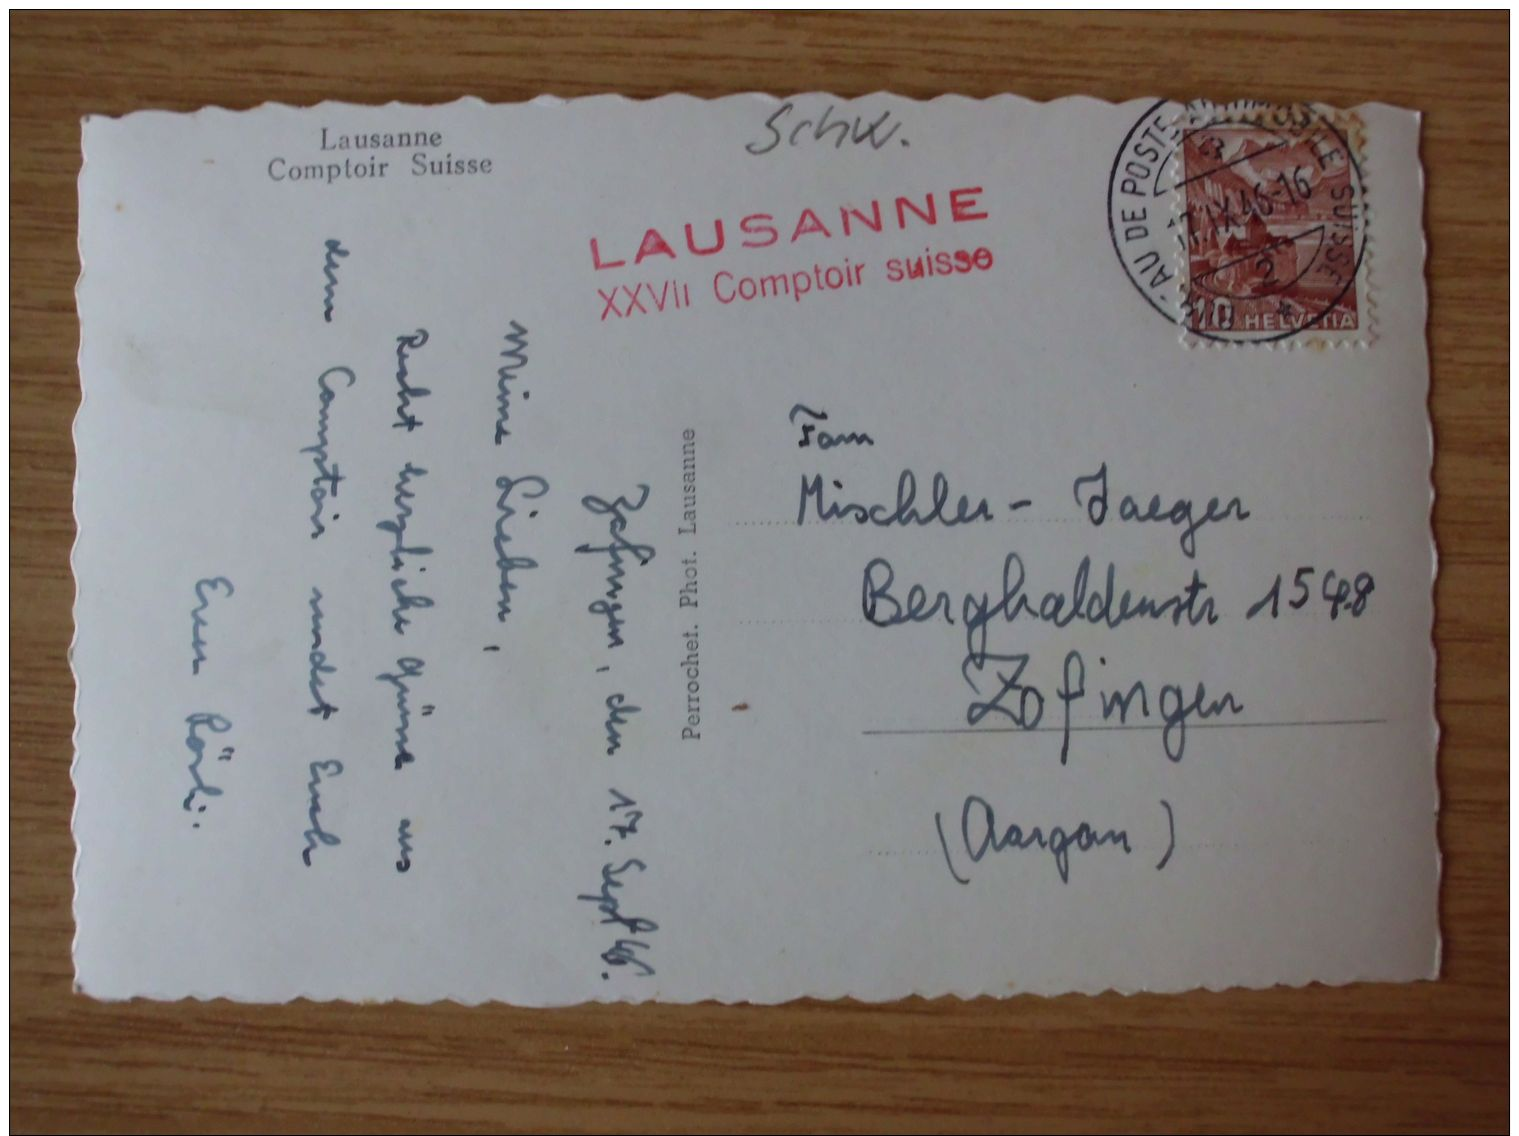 Lausanne
Comptoir Suisse
Schw.
LAUSANNE
XXVII Comptoir suisse
AU DE POSTE AUTOMOBILE SUISSE
17.IX.46-16
2
10 HELVETIA
Zofingen, den 17. Sept 46.
Meine Lieben,
Recht herzliche Grüsse aus
dem Comptoir sendet Euch
Euer Rösli.
Perrochet. Phot. Lausanne
Fam
Mischler - Jaeger
Berghaldenstr 1548
Zofingen
(Aargau)